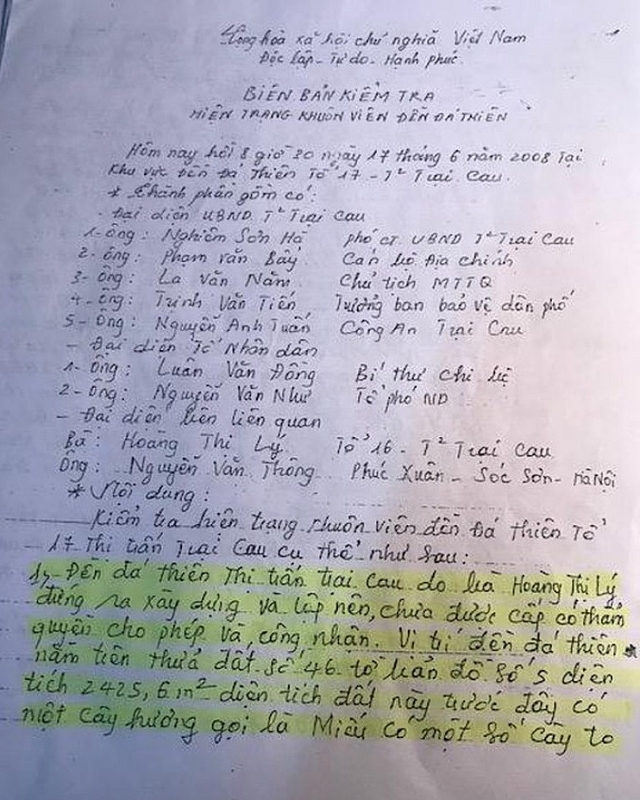 Cộng hoà xã hội chủ nghĩa Việt Nam
Độc lập - Tự do - Hạnh phúc
BIÊN BẢN KIỂM TRA
HIỆN TRẠNG KHUÔN VIÊN ĐỀN ĐÁ THIÊN
Hôm nay hồi 8 giờ 30 ngày 17 tháng 6 năm 2008 Tại
Khu vực Đền Đá Thiên Tổ 17 - T² Trại Cau.
* Thành phần gồm có:
- Đại diện UBND T² Trại Cau
1 - Ông: Nghiêm Sơn Hà phó CT UBND T² Trại Cau
2 - Ông: Phạm Văn Bẩy Cán bộ Địa chính
3 - Ông: La Văn Năm Chủ tịch MTTQ
4 - Ông: Trịnh Văn Tiến Trưởng ban bảo vệ dân phố
5 - Ông: Nguyễn Anh Tuấn Công An Trại Cau
- Đại diện Tổ Nhân dân
1 - Ông: Luân Văn Đồng Bí thư chi bộ
2 - Ông: Nguyễn Văn Như Tổ phó ND
- Đại diện bên liên quan
Bà: Hoàng Thị Lý Tổ 16 - T² Trại Cau
Ông: Nguyễn Văn Thông Phúc Xuân - Sóc Sơn - Hà Nội
* Nội dung:
Kiểm tra hiện trạng khuôn viên đền Đá thiên Tổ
17 Thị trấn Trại Cau cụ thể như sau:
1, Đền đá thiên Thị trấn trại cau do bà Hoàng Thị Lý
đứng ra xây dựng và lập nên, chưa được cấp có thẩm
quyền cho phép và công nhận. Vị trí đền đá thiên
nằm trên thửa đất số 46 tờ bản đồ số 5 diện
tích 2425,6 m² diện tích đất này trước đây có
một cây hương gọi là Miếu có một số cây to